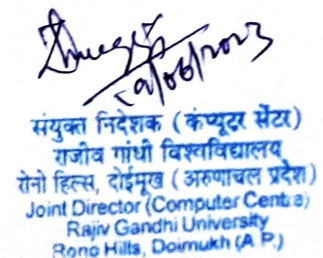 संयुक्त निदेशक (कंप्यूटर सेंटर)
राजीव गांधी विश्वविद्यालय
रोनो हिल्स, दोईमुख (अरुणाचल प्रदेश)
Joint Director (Computer Centre)
Rajiv Gandhi University
Rono Hills, Doimukh (A P.)